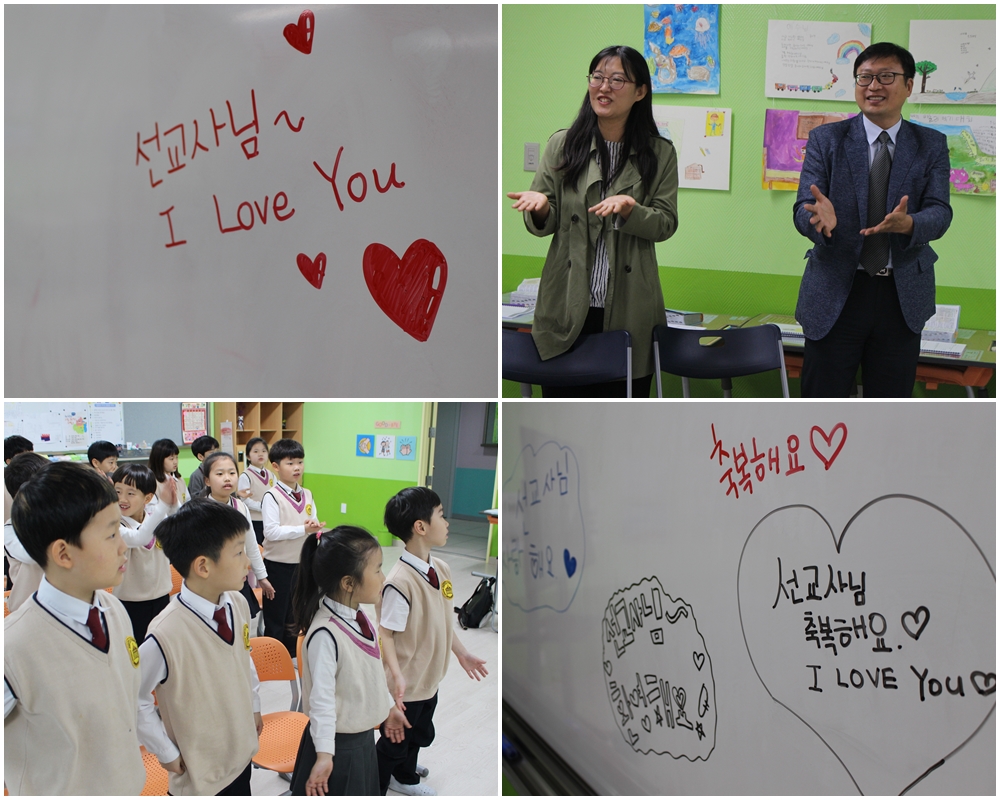 선교사님~
I Love You
축복해요♡
선교사님
해요
선교사님
축복해요.♡
I LOVE You♡
선교사님~